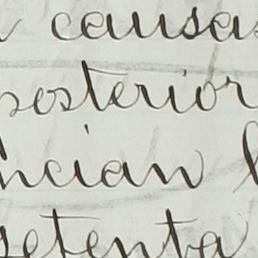 causas
posterior
hacian
setenta